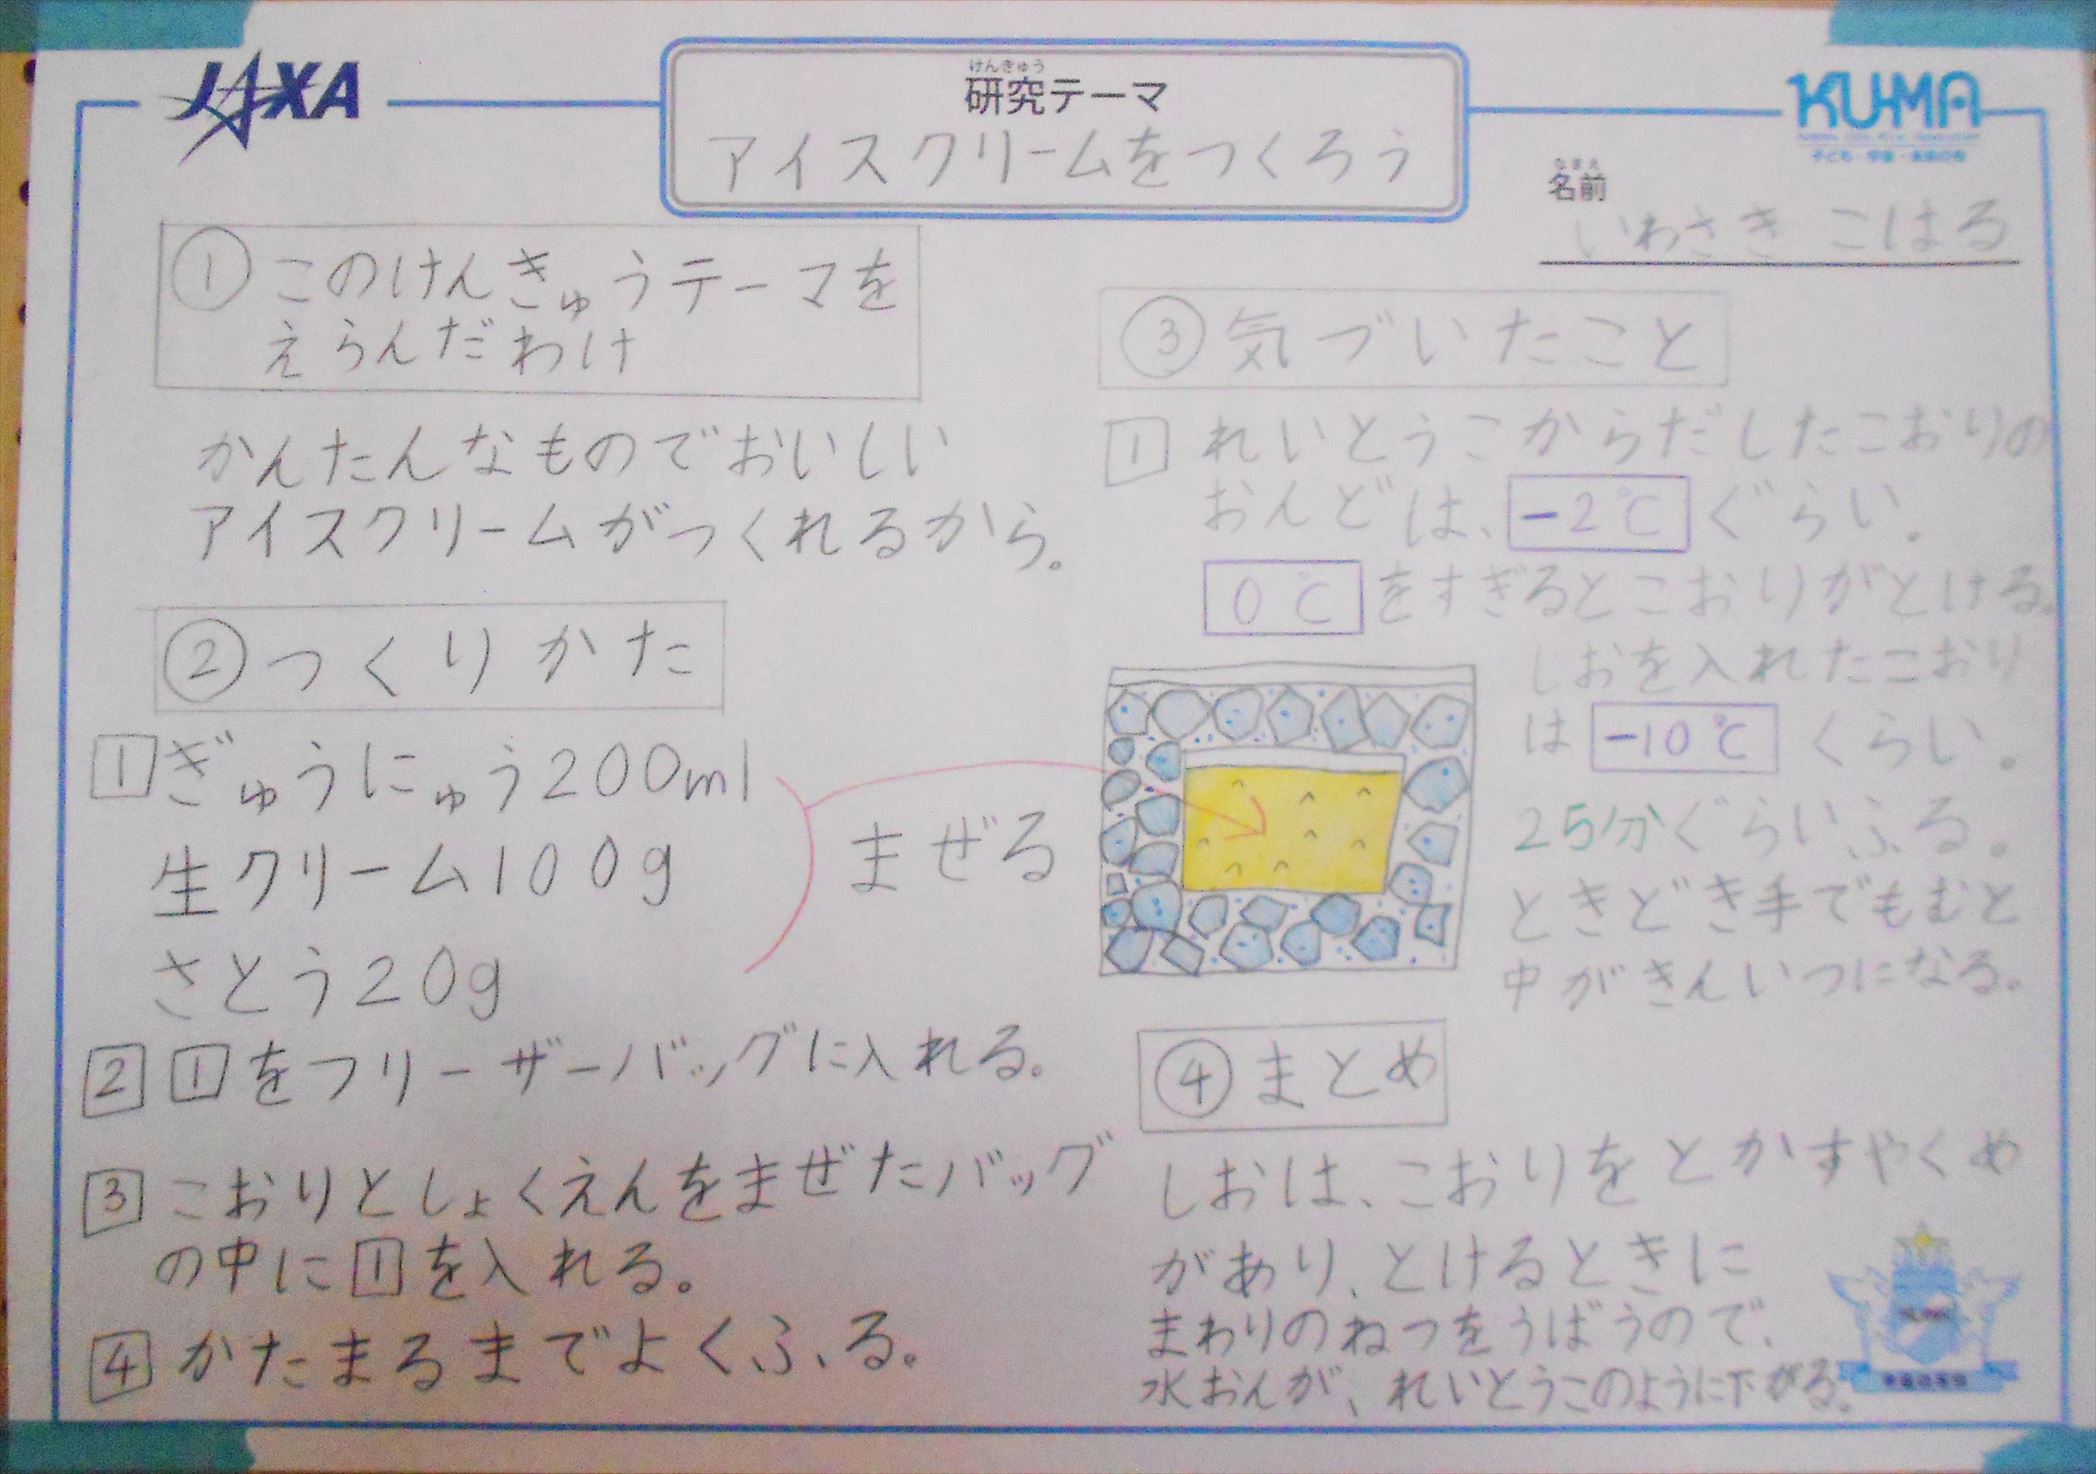 JAXA
けんきゅう
研究テーマ
アイスクリームをつくろう
KUMA
子ども・宇宙・未来の会
なまえ
名前
いわさき こはる
① このけんきゅうテーマを
えらんだわけ
かんたんなものでおいしい
アイスクリームがつくれるから。
② つくりかた
1 ぎゅうにゅう200ml
生クリーム100g
さとう20g
まぜる
2 1をフリーザーバッグに入れる。
3 こおりとしょくえんをまぜたバッグ
の中に1を入れる。
4 かたまるまでよくふる。
③ 気づいたこと
1 れいとうこからだしたこおりの
おんどは、-2℃ぐらい。
0℃をすぎるとこおりがとける。
しおを入れたこおり
は-10℃くらい。
25分ぐらいふる。
ときどき手でもむと
中がきんいつになる。
④ まとめ
しおは、こおりをとかすやくめ
があり、とけるときに
まわりのねつをうばうので、
水おんが、れいとうこのように下がる。